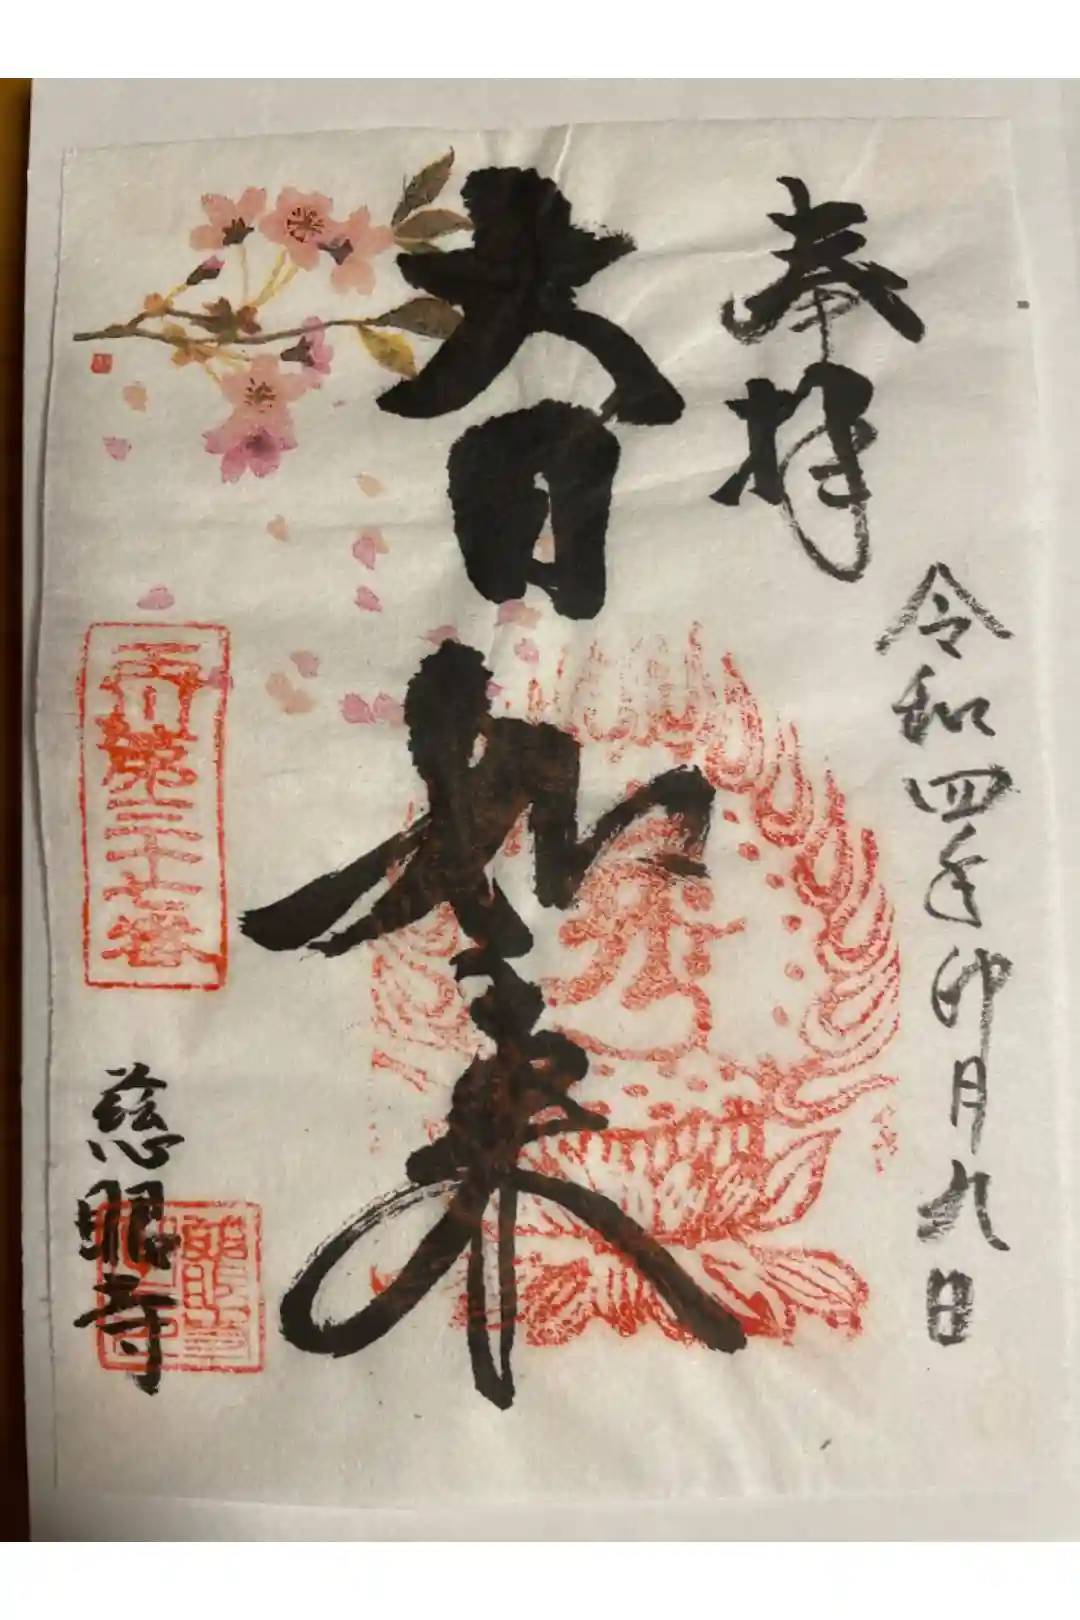 奉拝
令和四年卯月九日
大日如来
第三十七番
慈眼寺